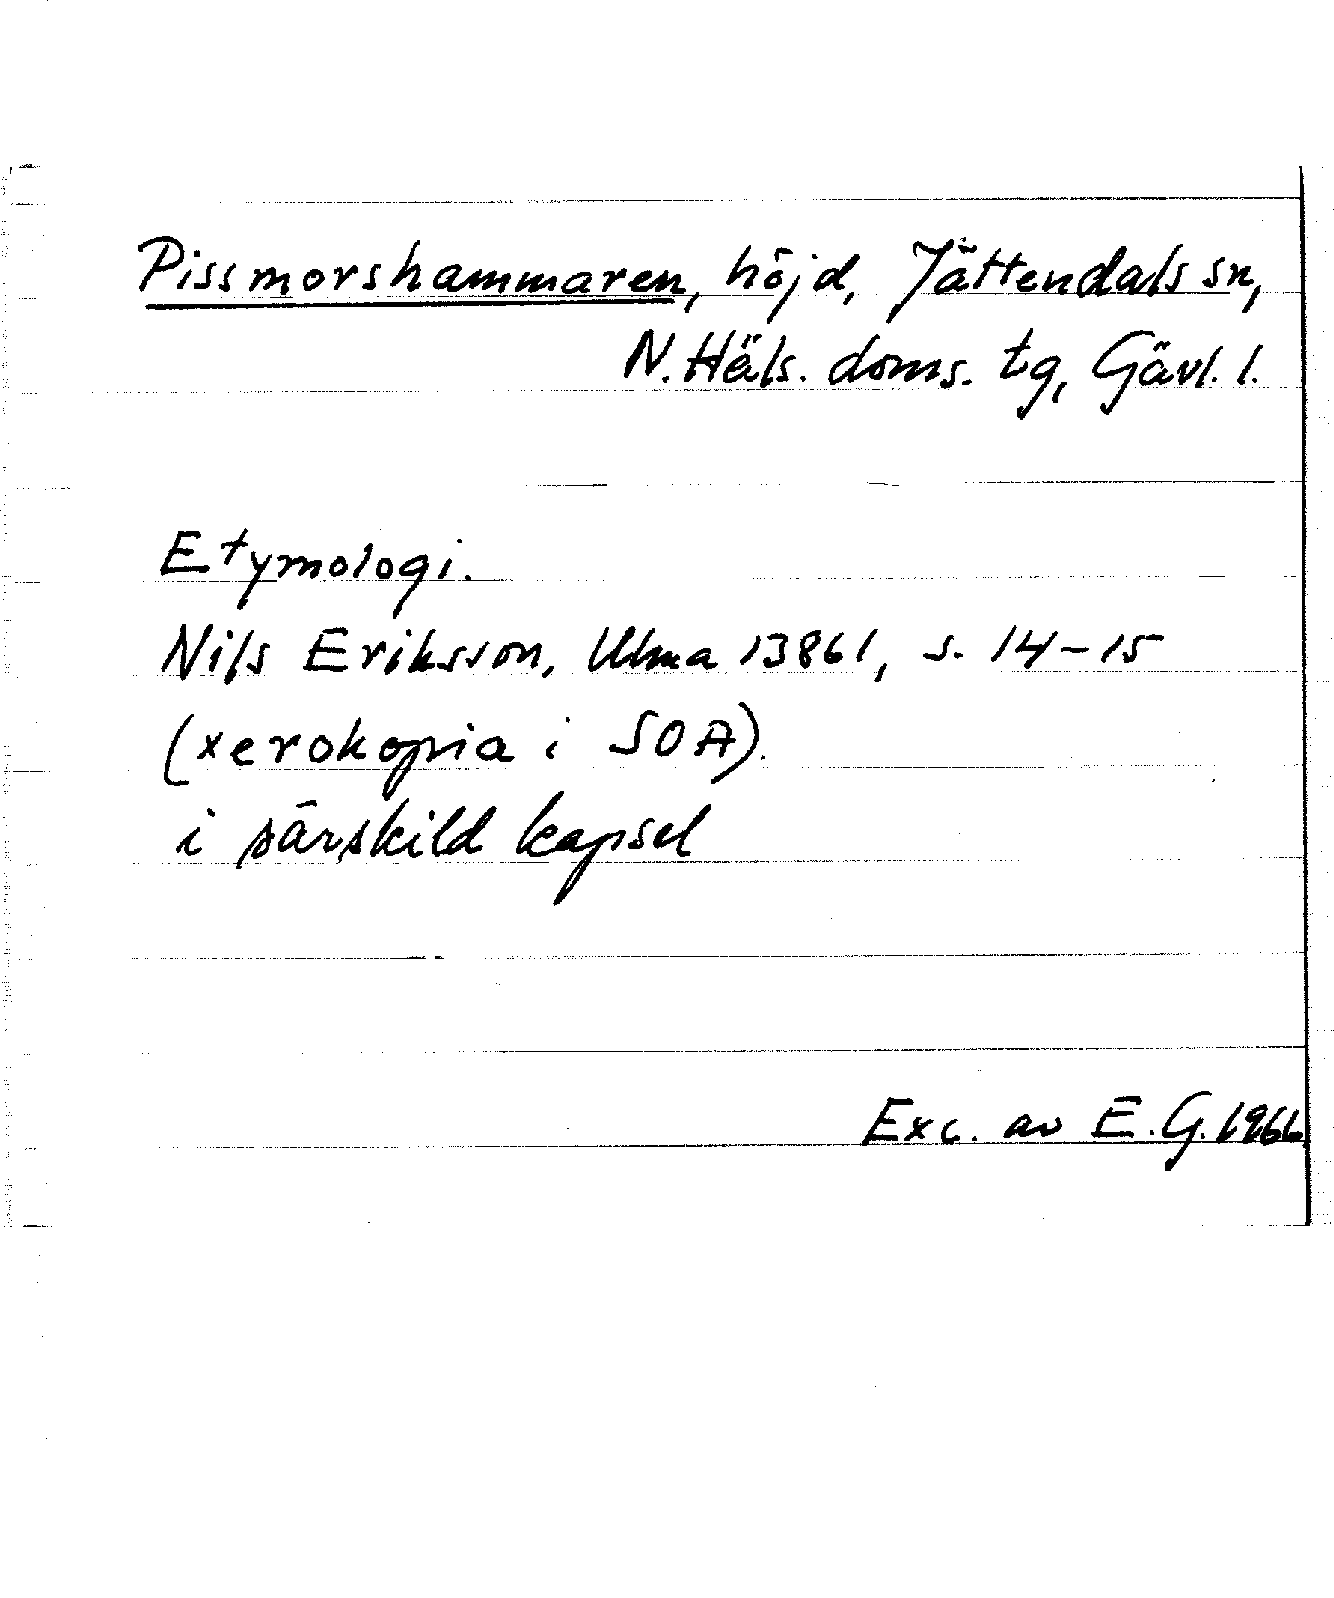 Pissmorshammaren, höjd, Jättendals sn,
N. Häls. doms. tg, Gävl. l.
Etymologi.
Nils Eriksson, Ulma 13861, s. 14-15
(xerokopia i SOA).
i särskild kapsel
Exc. av E.G. 1966